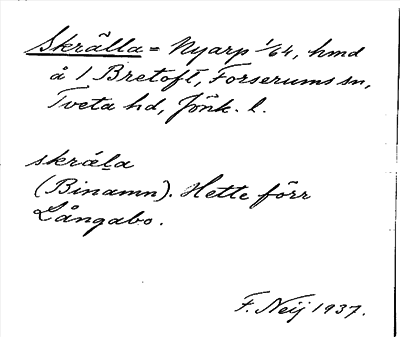 Skrälla = Nyarp 1/64, hmd
å 1 Bretofl, Forserums sn,
Tveta hd, Jönk. l.
skräla
(Binamn). Hette förr
Långabo.
F. Neij 1937.